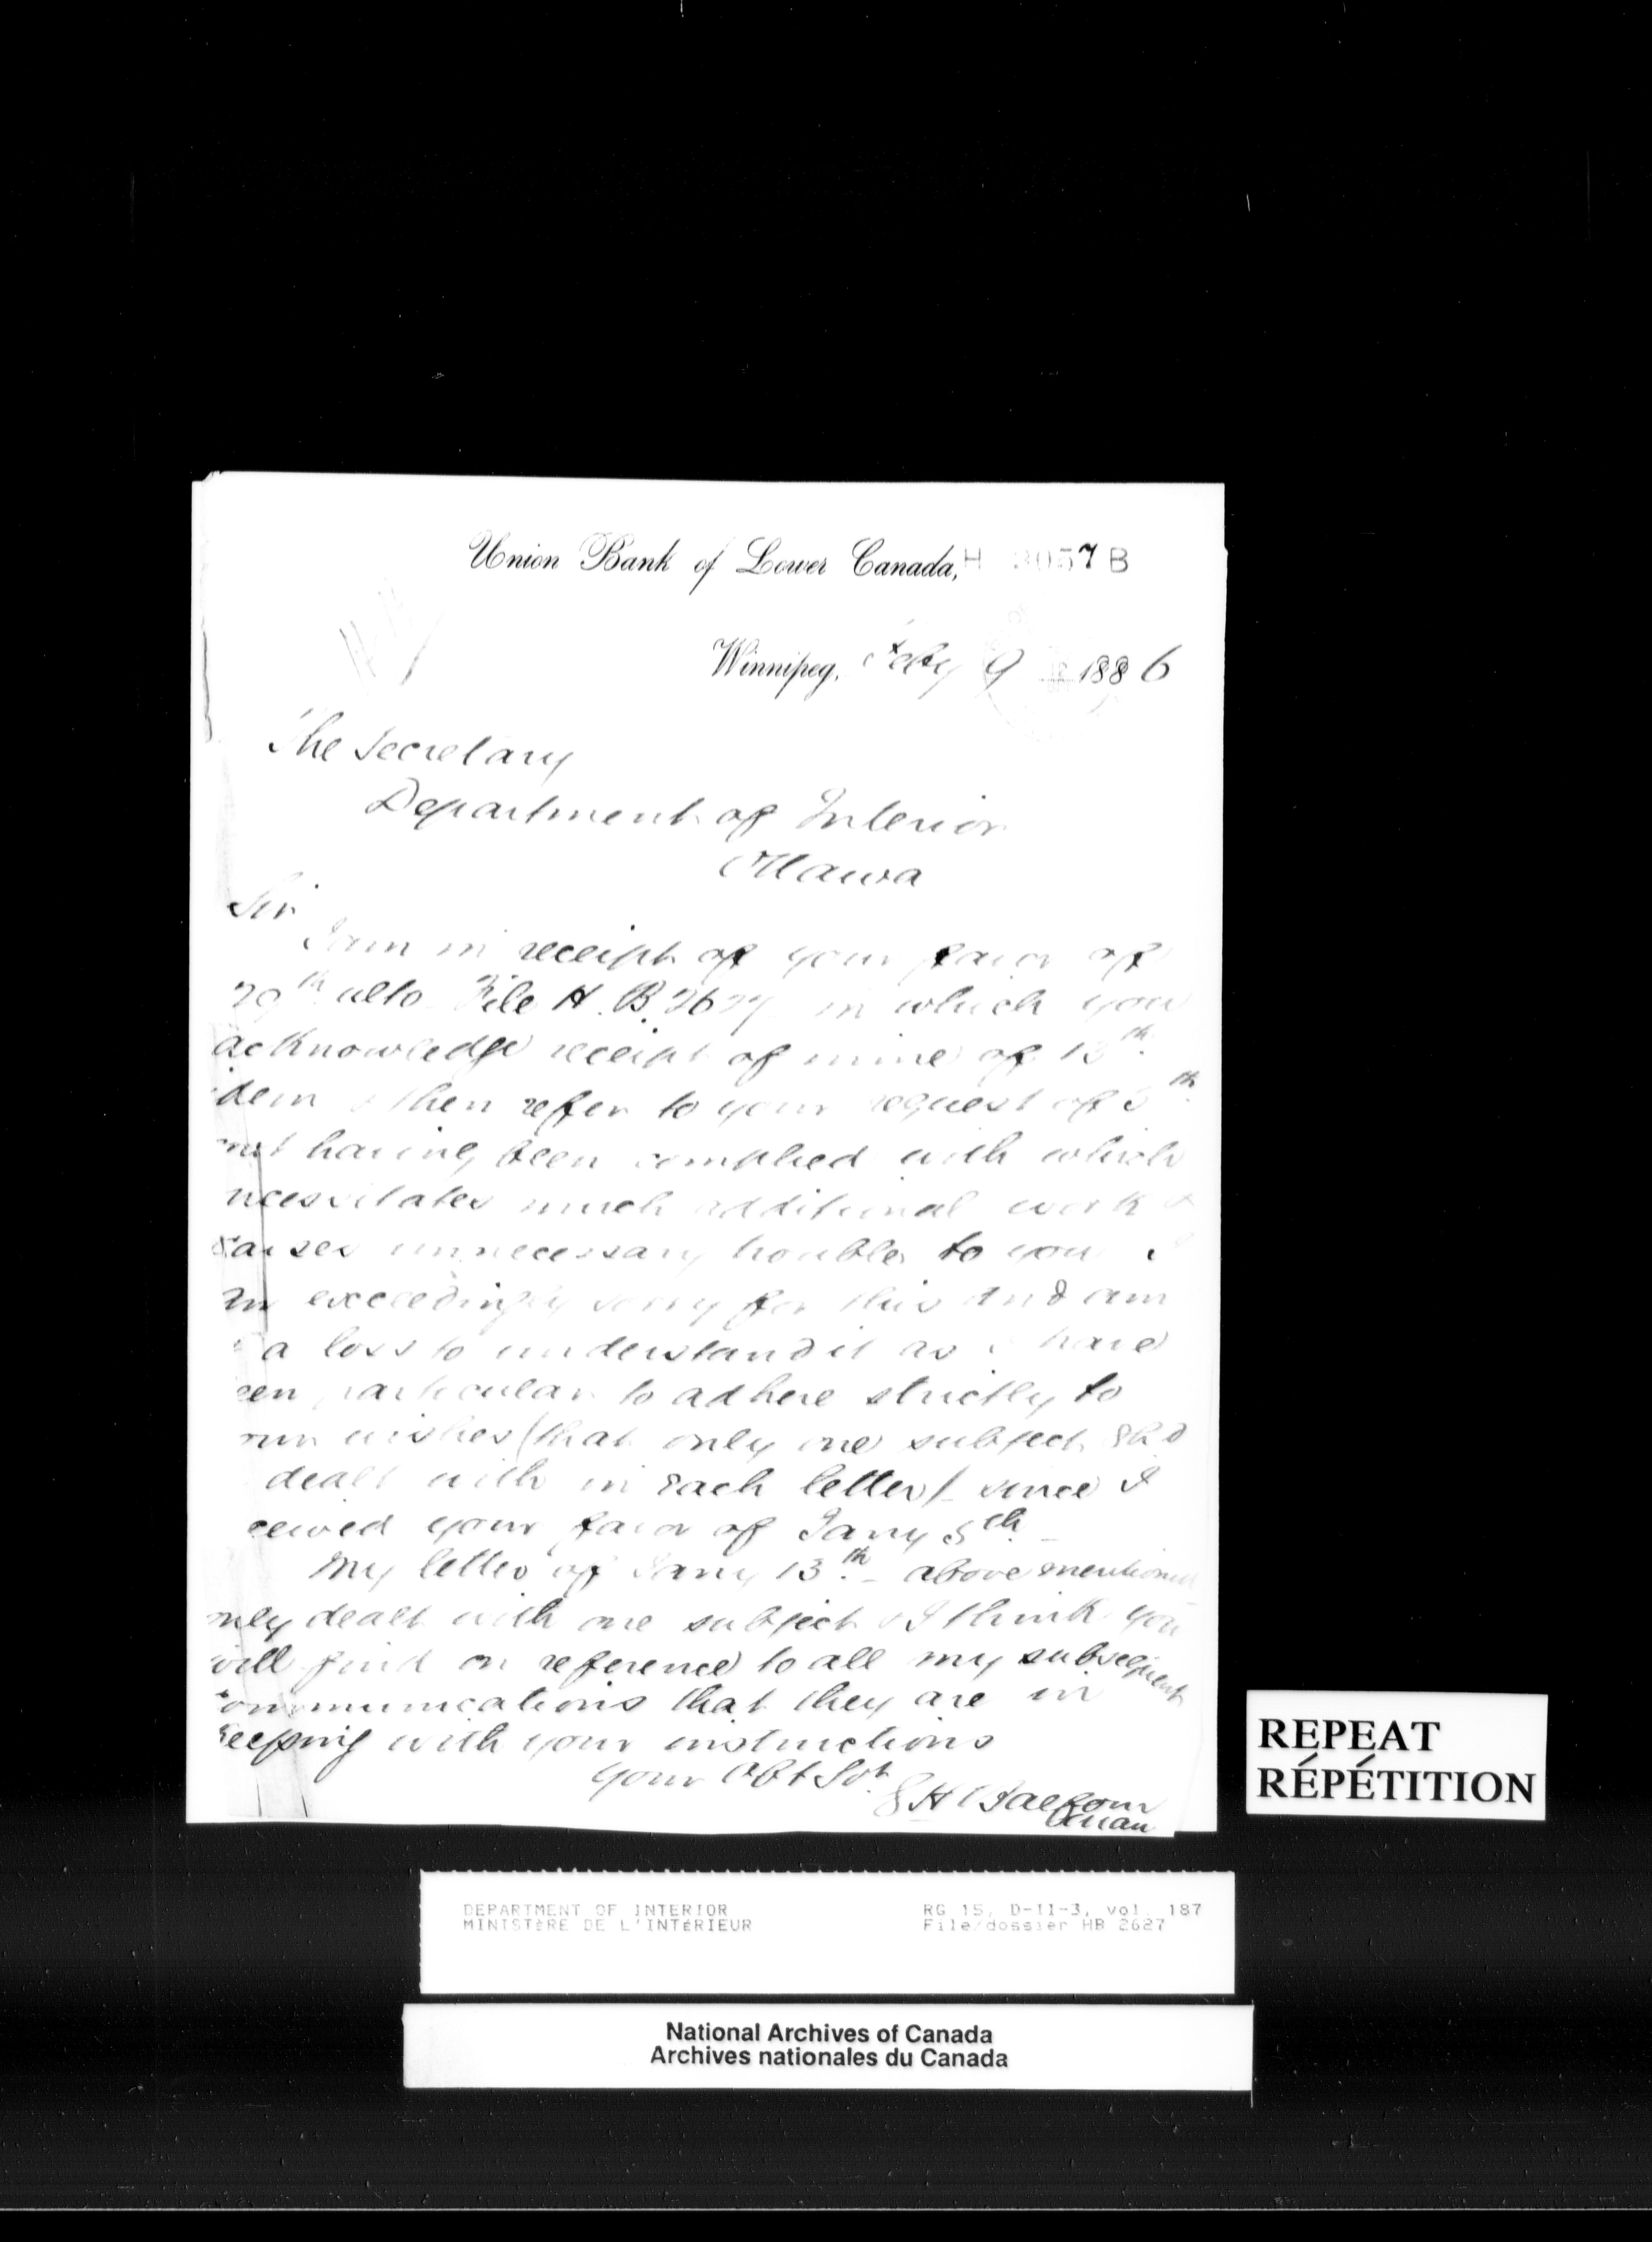 Union Bank of Lower Canada, H 3057 B
Winnipeg, Feby 9 1886
The Secretary
Department of Interior
Ottawa
Sir
I am in receipt of your favor of
29th ulto File H.B. 2627 in which you
acknowledge receipt of mine of 13th
idem & then refer to your request of 5th
not having been complied with which
necessitates much additional work &
causes unnecessary trouble to you I
am exceedingly sorry for this and am
a loss to understand it as I have
een particular to adhere strictly to
our wishes (that only one subject shd
dealt with in each letter) since I
ceived your favor of Jany 5th
My letter of Jany 13th - above mentioned
only dealt with one subject & I think you
will find on reference to all my subsequent
communications that they are in
keeping with your instructions
Your Obt Svt
REPEAT
RÉPÉTITION
DEPARTMENT OF INTERIOR
MINISTÈRE DE L'INTÉRIEUR
RG 15, D-II-3, vol. 187
File/dossier HB 2627
National Archives of Canada
Archives nationales du Canada